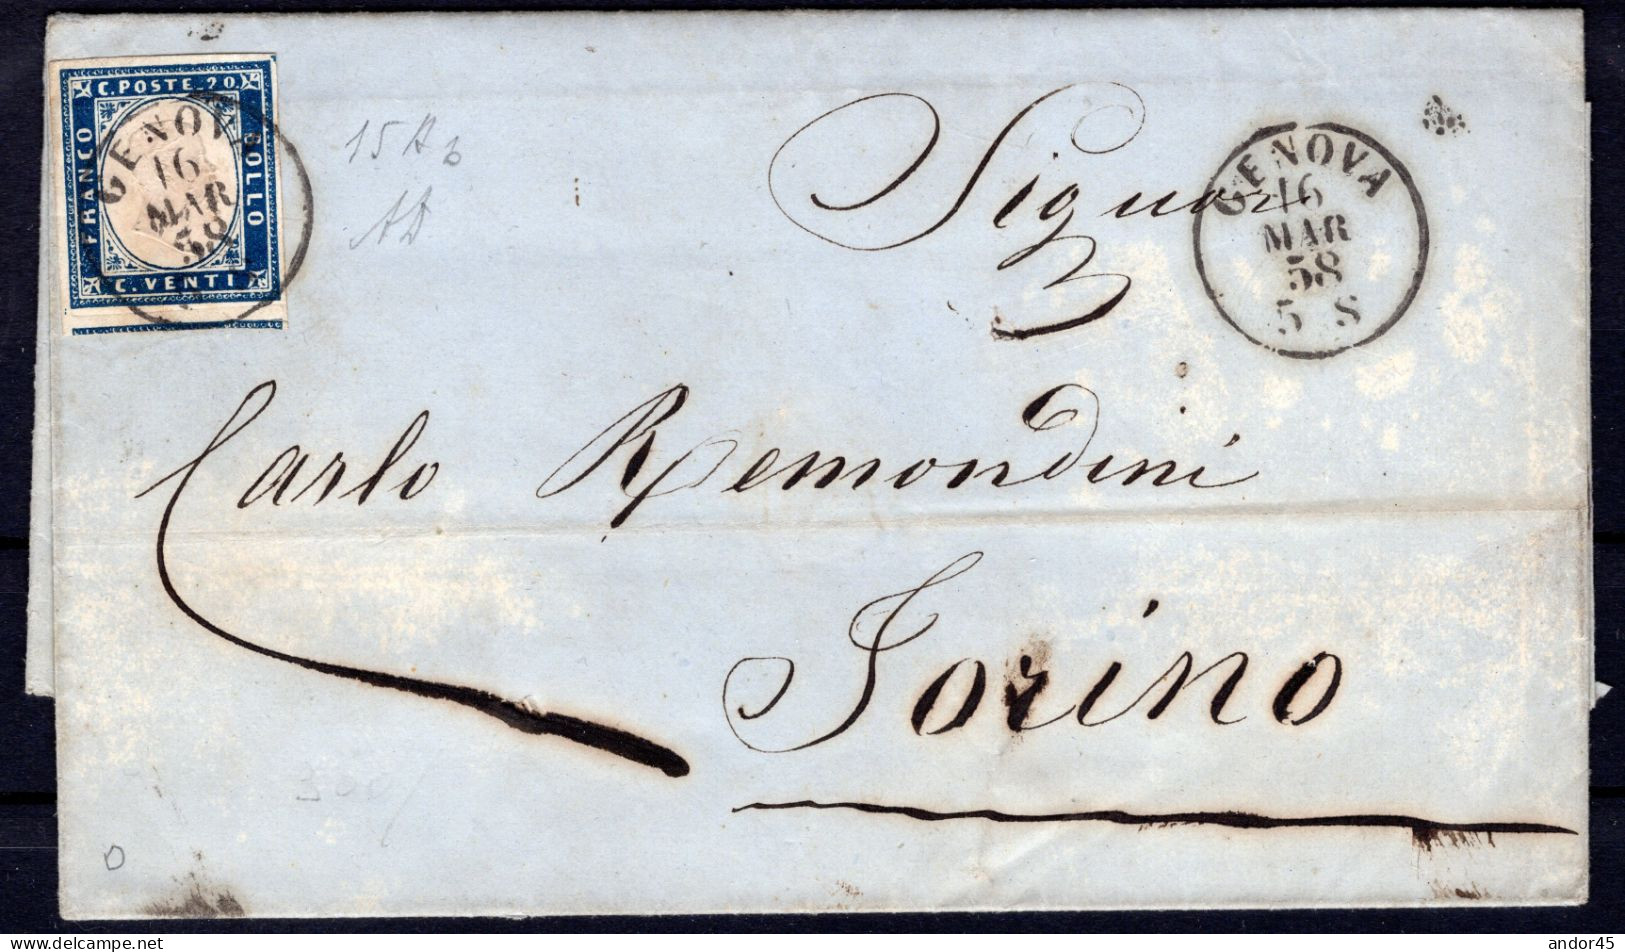 C. POSTE. 20.
FRANCO
BOLLO
C. VENTI
GENOVA
16
MAR
58
15Ab
AD
Signor
GENOVA
16
MAR
58
5 S
Carlo Remondini
Torino
300/
D
www.delcampe.net
andor45